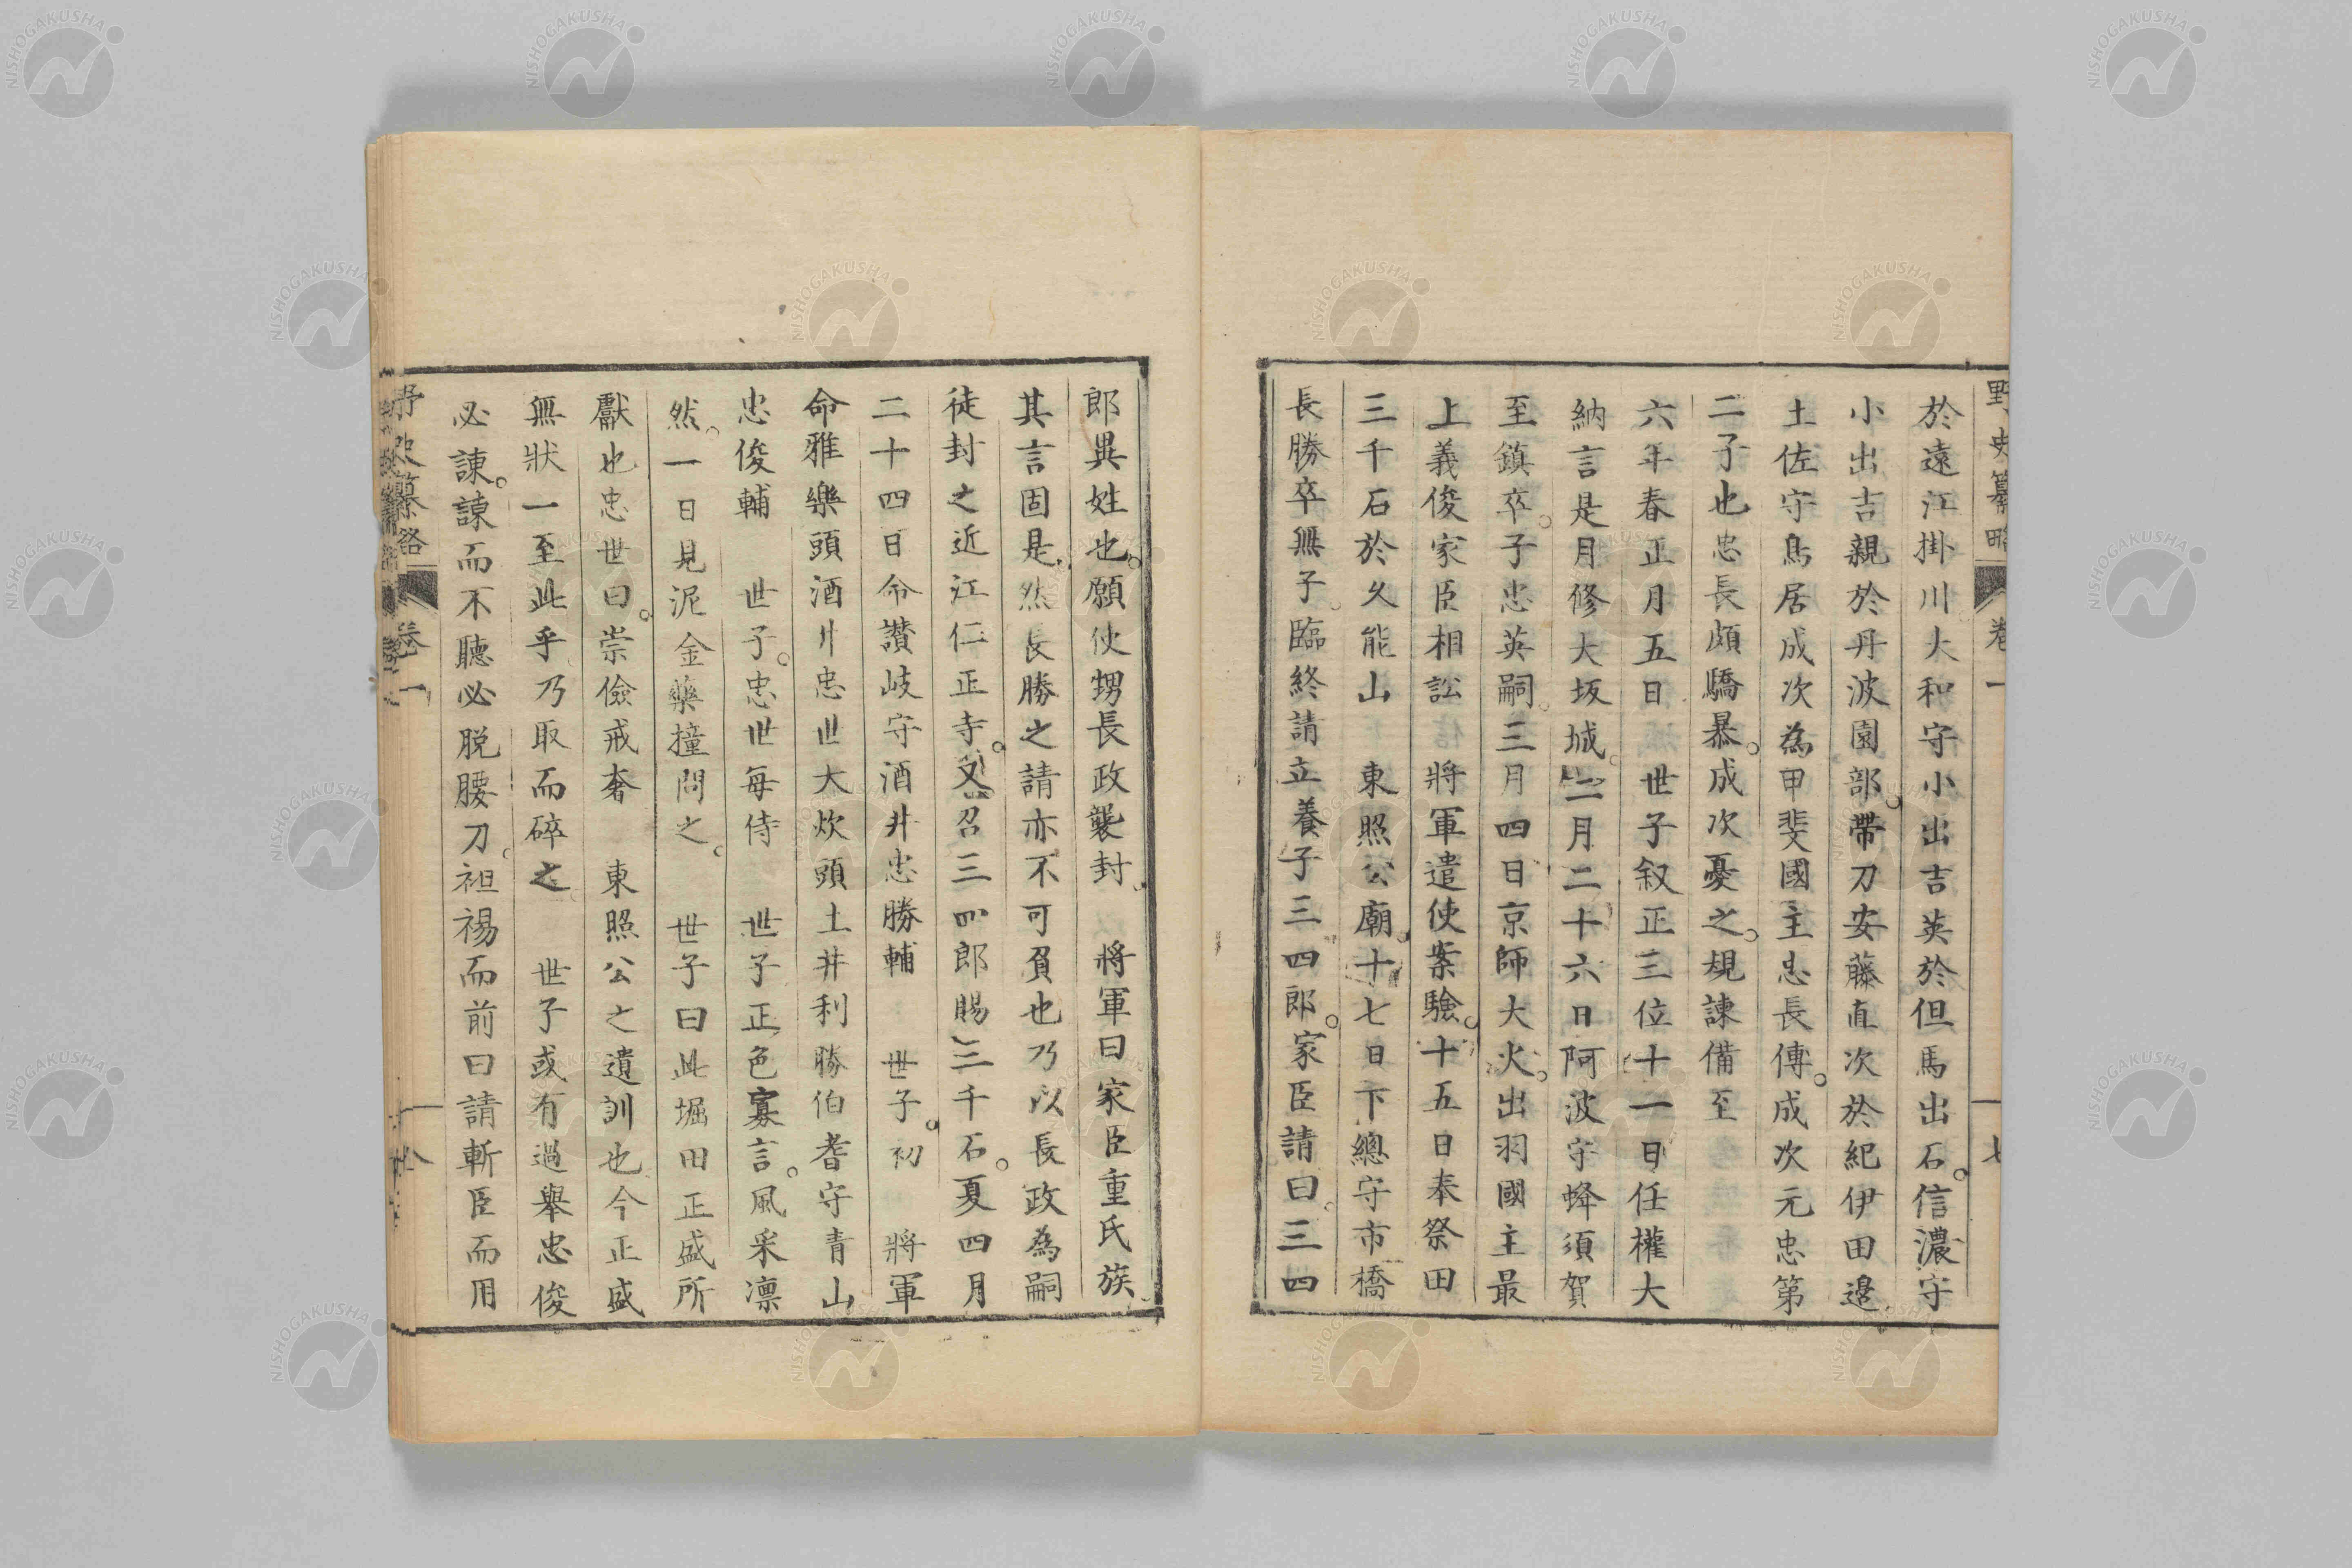 野史纂略 卷一 十七
於遠江掛川大和守小出吉英於但馬出石。信濃守
小出吉親於丹波園部。帶刀安藤直次於紀伊田邉。
土佐守鳥居成次為甲斐國主忠長傅。成次元忠第
二子也忠長頗驕暴。成次憂之。規諫備至
六年春正月五日 世子叙正三位十一日任權大
納言是月修大坂城。二月二十六日阿波守蜂須賀
至鎮卒。子忠英嗣。三月四日京師大火。出羽國主最
上義俊家臣相訟 將軍遣使案驗。十五日奉祭田
三千石於久能山 東照公廟。十七日下總守市橋
長勝卒無子。臨終請立養子三四郎。家臣請曰。三四
郎異姓也。願使甥長政襲封。 將軍曰家臣重氏族
其言固是。然長勝之請亦不可負也乃以長政為嗣
徒封之近江仁正寺。又召三四郎賜三千石。夏四月
二十四日命讃岐守酒井忠勝輔 世子。初 將軍
命雅樂頭酒井忠世大炊頭土井利勝伯耆守青山
忠俊輔 世子。忠世每侍 世子正色寡言。風采凛
然。一日見泥金藥撞問之。 世子曰此堀田正盛所
獻也忠世曰。崇儉戒奢 東照公之遺訓也今正盛
無狀一至此乎乃取而碎之 世子或有過舉忠俊
必諫。諫而不聽必脱腰刀。袒裼而前曰請斬臣而用
野史纂略 卷一